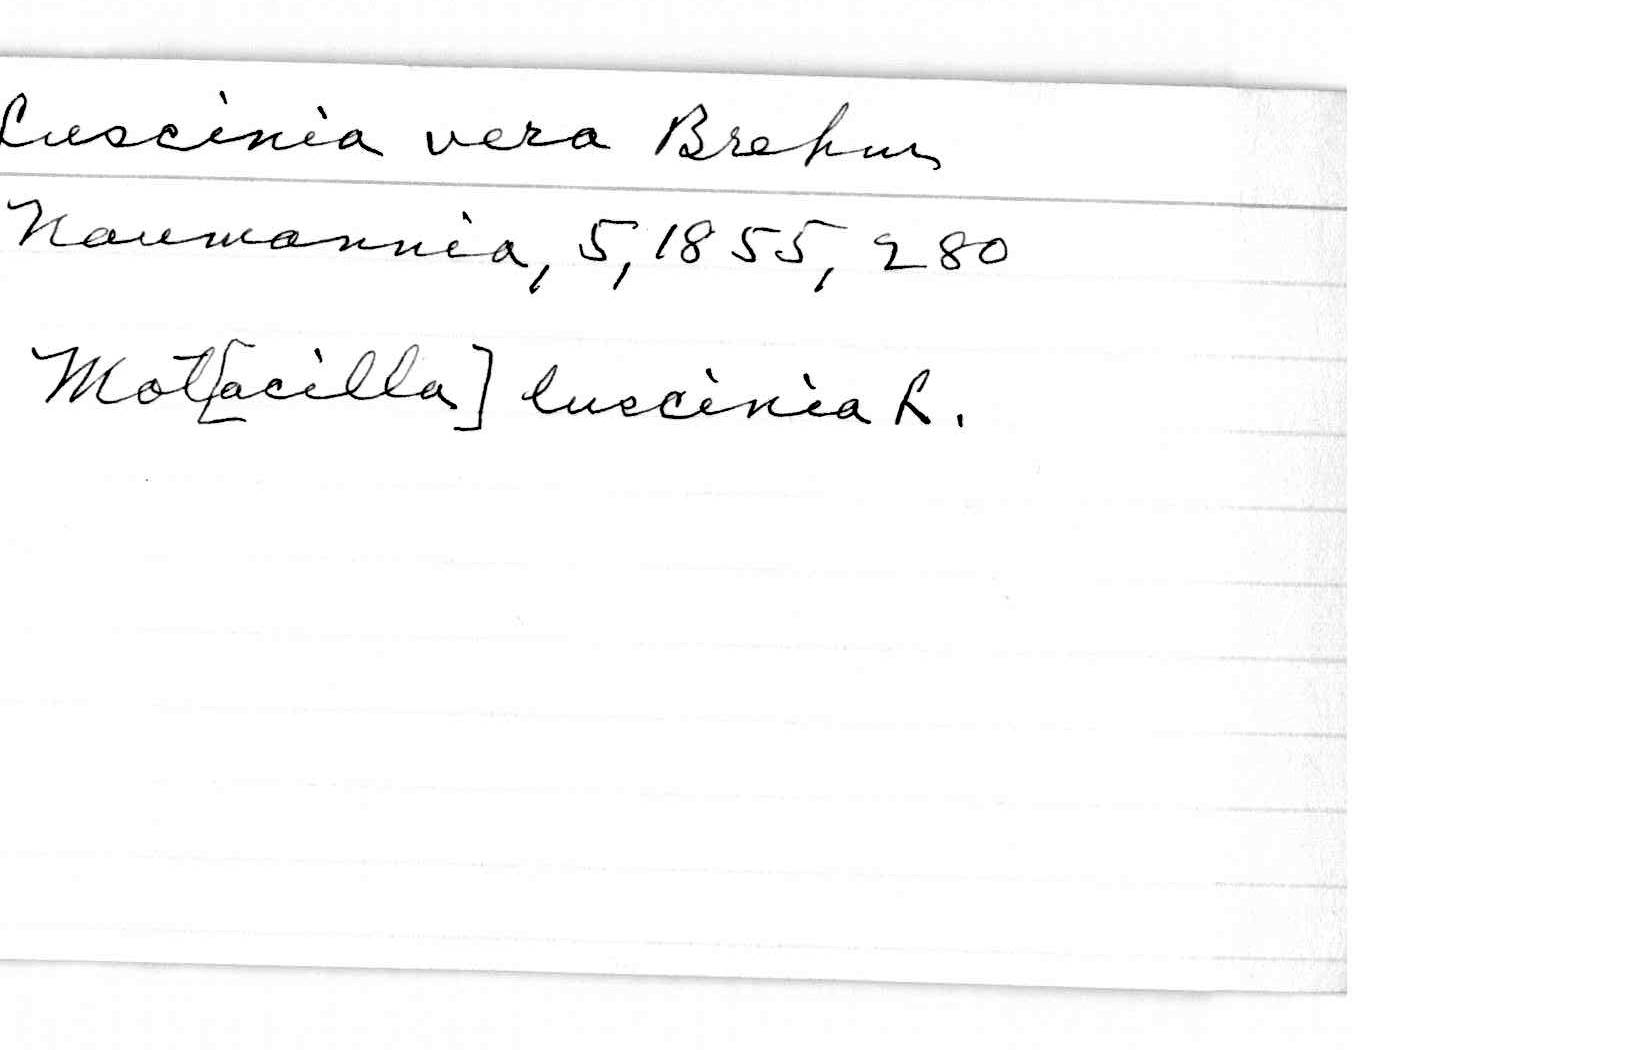 Luscinia vera Brehm
Naumannia, 5, 1855, 280
Mot[acilla] luscinia L.